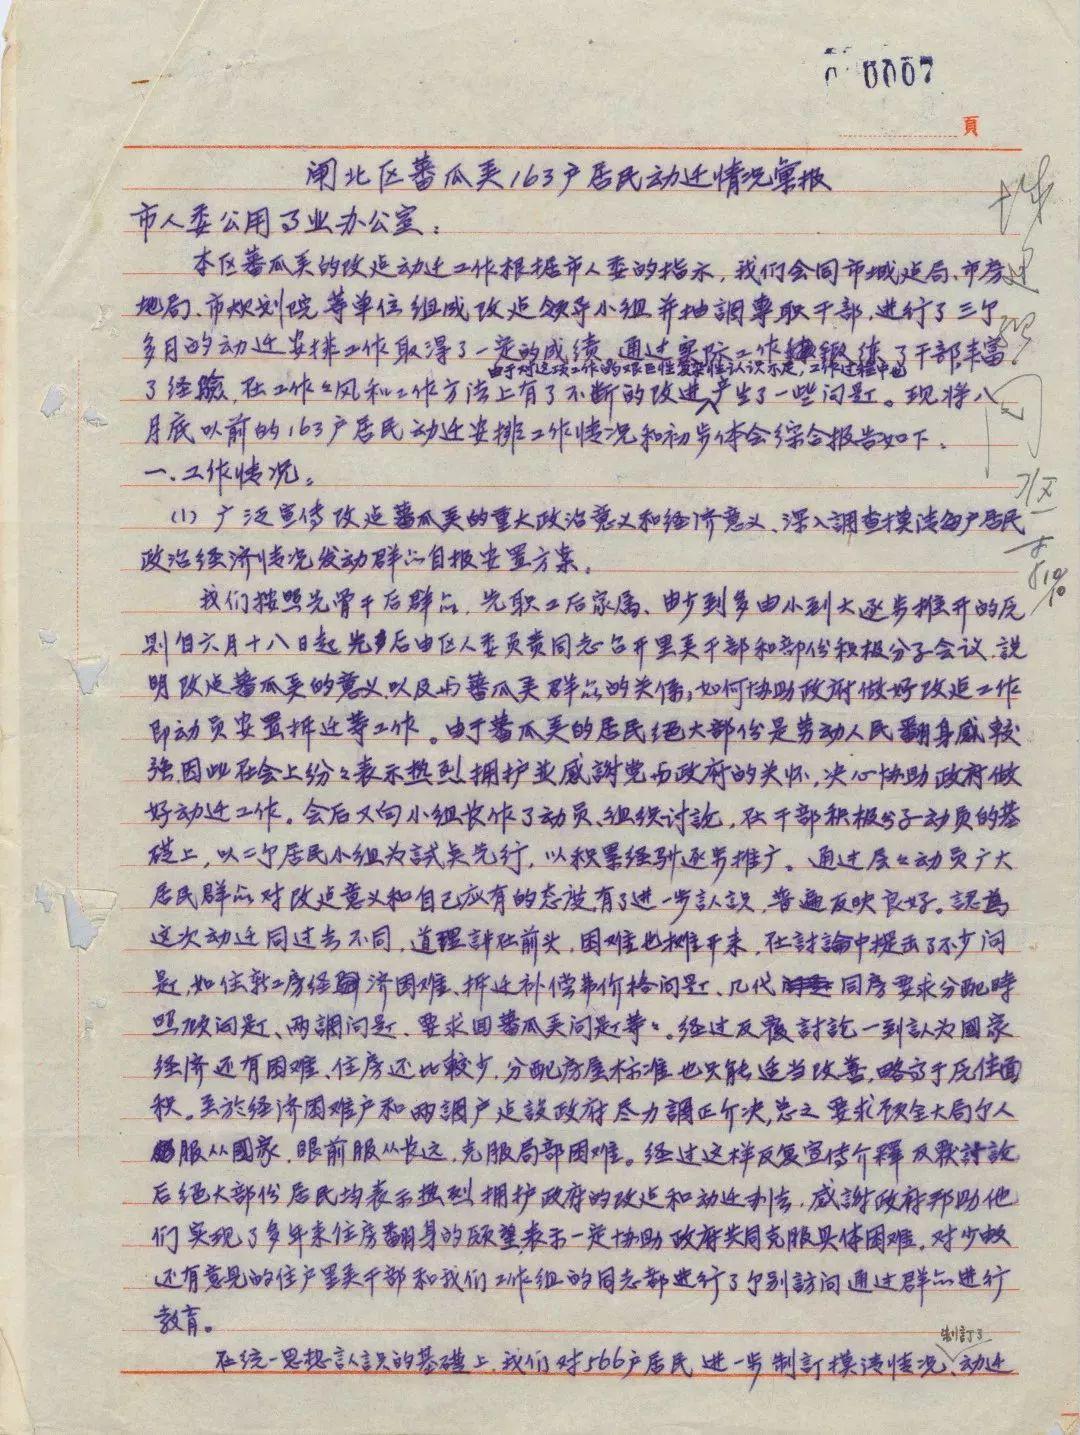 0007
頁
闸北区蕃瓜弄163户居民动迁情况彙报
市人委公用事业办公室：
本区蕃瓜弄的改造动迁工作根据市人委的指示，我们会同市城建局、市房
地局、市规划院等单位组成改造领导小组并抽調專职干部，进行了三个
多月的动迁安排工作取得了一定的成绩，通过实际工作鍛练了干部，丰富
由于对这项工作的艰巨性复杂性认识不足，工作过程中也
了经驗，在工作作风和工作方法上有了不断的改进，产生了一些问题。现将八
月底以前的163户居民动迁安排工作情况和初步体会综合报告如下：
一、工作情况：
(1) 广泛宣传改造蕃瓜弄的重大政治意义和经济意义、深入調查摸清每户居民
政治经济情况发动群众自报安置方案。
我们按照先骨干后群众，先职工后家属、由少到多由小到大逐步推开的原
则自六月十八日起先后由区人委负责同志召开里弄干部和部份积极分子会议，説
明改造蕃瓜弄的意义以及与蕃瓜弄群众的关係；如何协助政府做好改造工作
即动员安置拆迁等工作。由于蕃瓜弄的居民绝大部份是劳动人民翻身感較
强，因此在会上纷纷表示热烈拥护並感謝党与政府的关怀，决心协助政府做
好动迁工作。会后又向小组长作了动员、组织讨論，在干部积极分子动员的基
础上，以二个居民小组为試点先行，以积累经驗逐步推广。通过层层动员广大
居民群众对改造意义和自己应有的态度，有了进一步認識，普遍反映良好。認為
这次动迁同过去不同，道理講在前头，困难也摊开来，在討論中提出了不少问
题，如住新工房经济困难、拆迁补偿费价格问题、几代同房要求分配時
照顾问题、两調问题、要求回蕃瓜弄问题等等。经过反覆討論一到认为國家
经济还有困难、住房还比較少，分配房屋标准也只能适当改善，略高于原住面
积。至於经济困难户和两調户建設政府尽力調正介决，总之要求顾全大局个人
服从國家，眼前服从长远，克服局部困难。经过这样反复宣传介釋反覆討論
后绝大部份居民均表示热烈拥护政府的改造和动迁办法，感謝政府帮助他
们实现了多年来住房翻身的願望，表示一定协助政府共同克服具体困难。对少数
还有意见的住户里弄干部和我们工作组的同志都进行了个别訪问通过群众进行
教育。
制訂了
在统一思想認識的基础上，我们对566户居民进一步制訂摸清情况、动迁